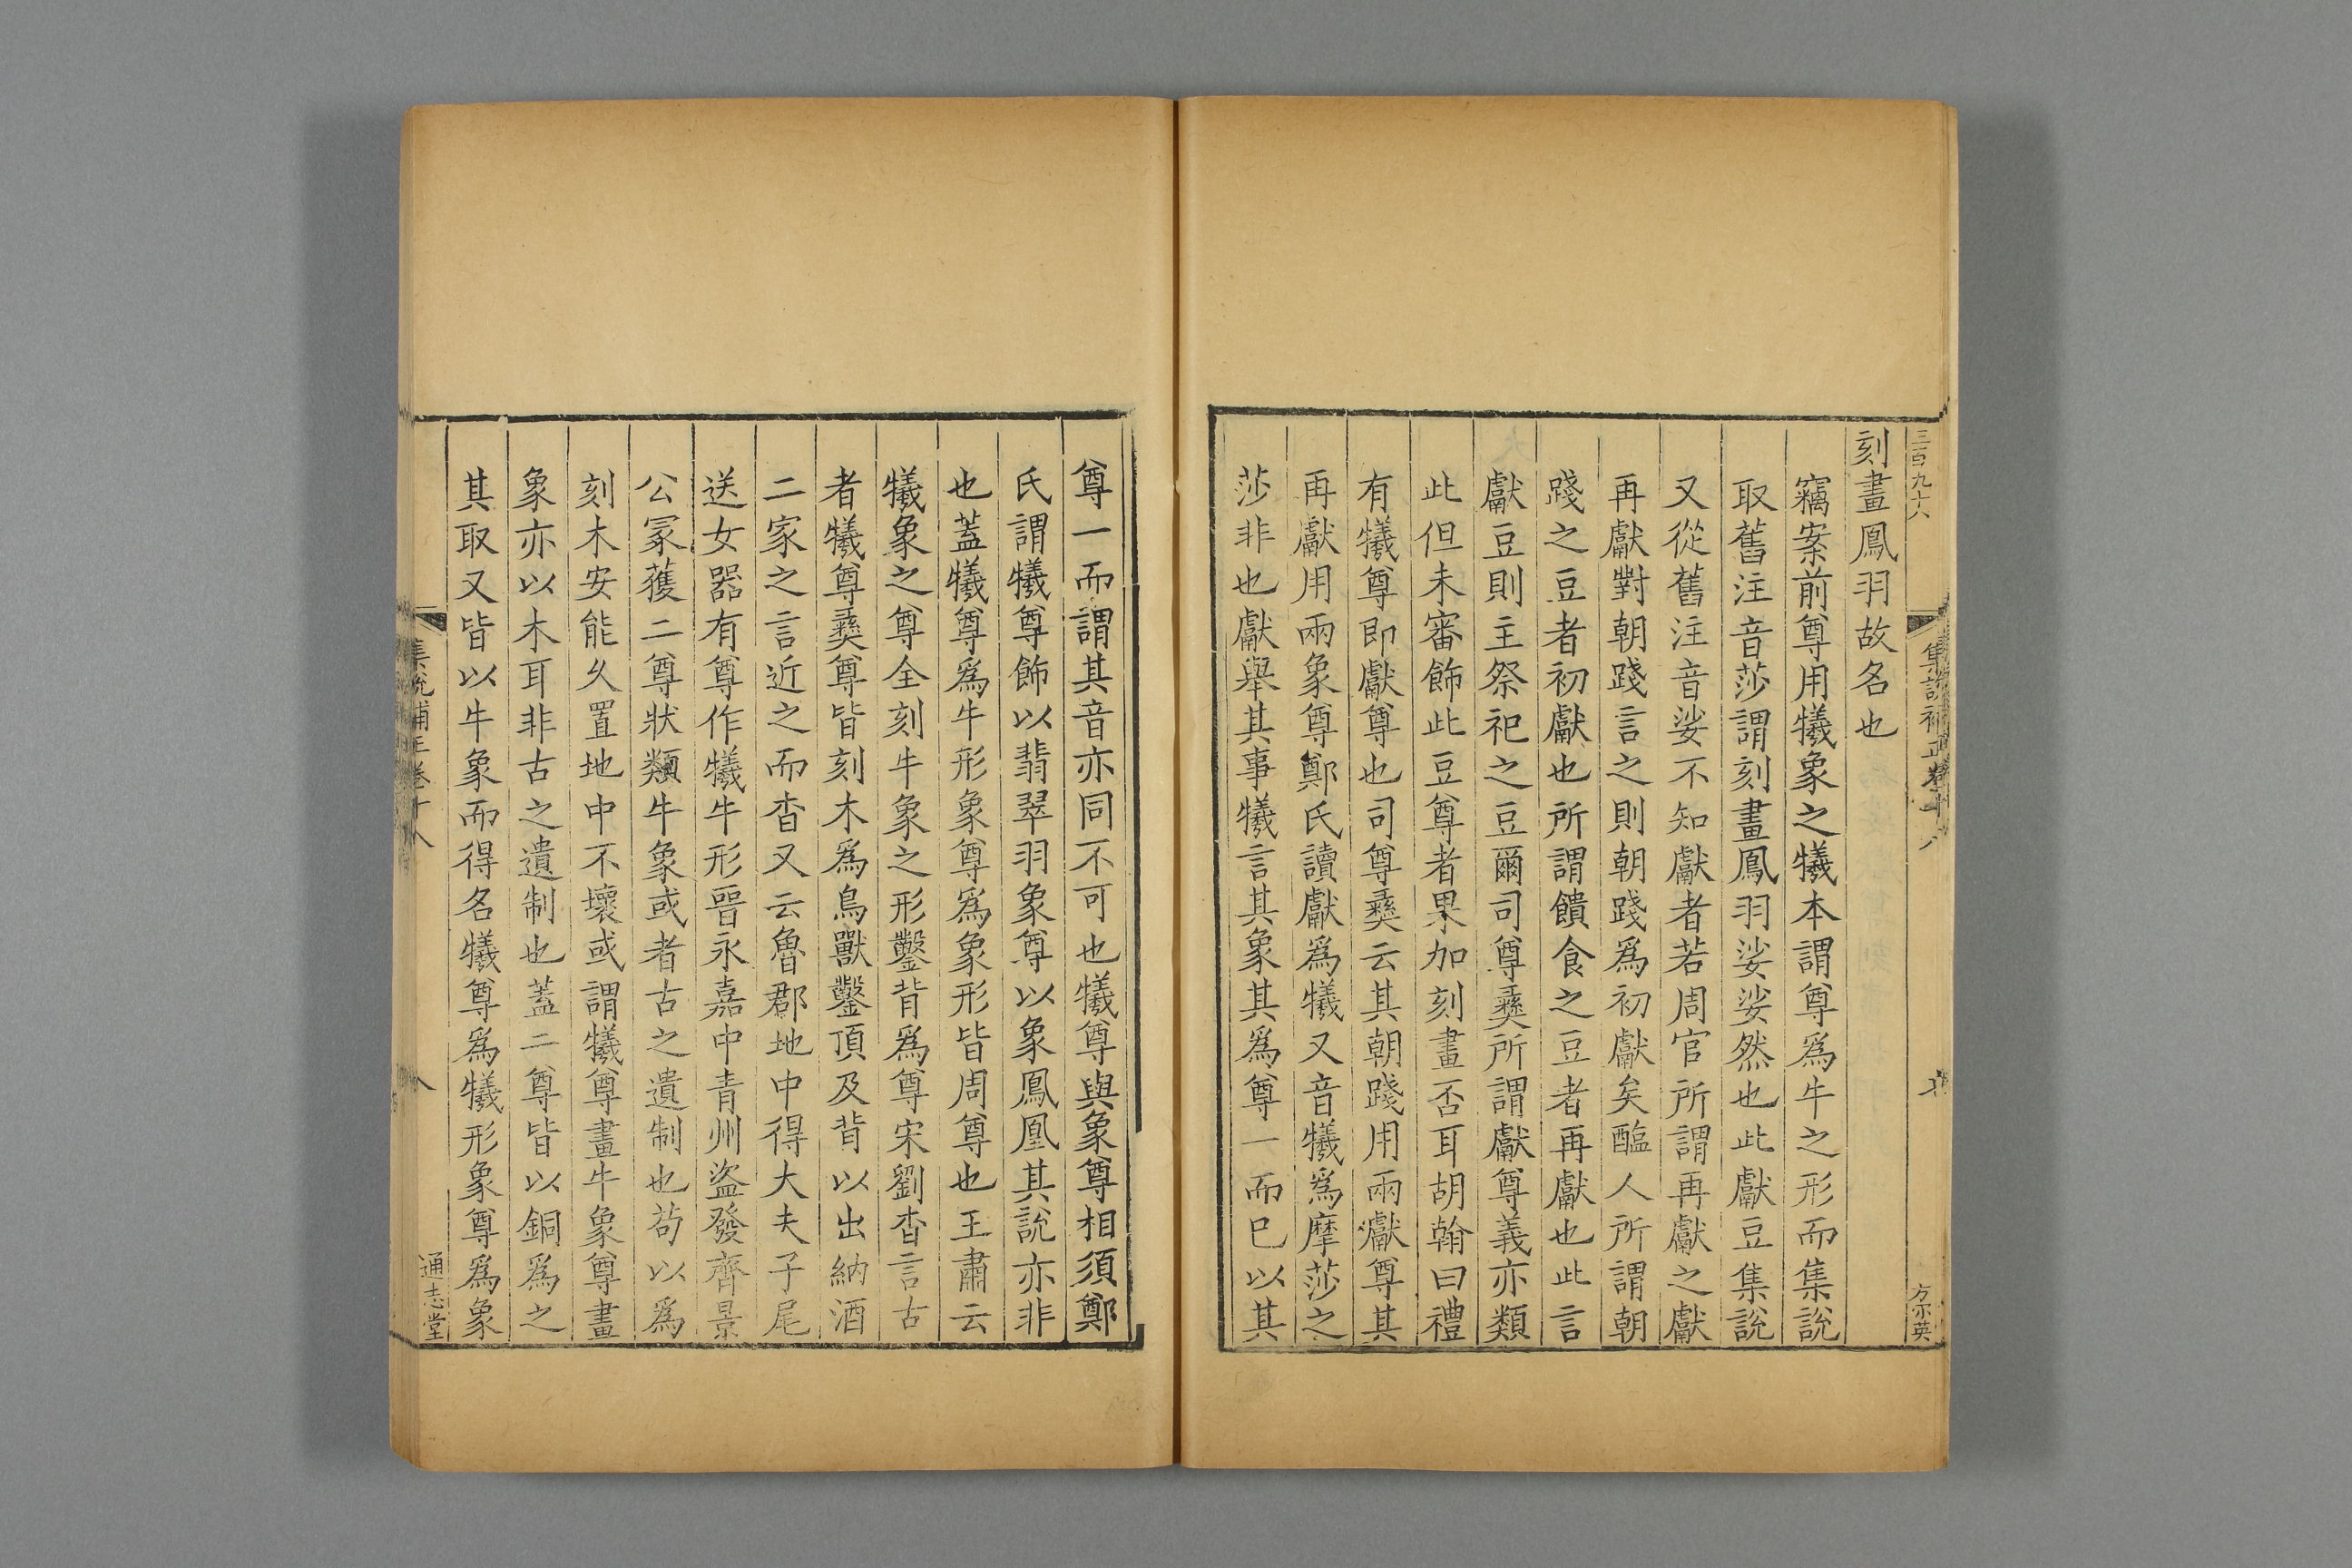 三百九十六
集說補正卷十八
方尔英
刻畫鳳羽故名也
竊案前尊用犧象之犧本謂尊爲牛之形而集說
取舊注音莎謂刻畫鳳羽娑娑然也此獻豆集說
又從舊注音娑不知獻者若周官所謂再獻之獻
再獻對朝踐言之則朝踐爲初獻矣醢人所謂朝
踐之豆者初獻也所謂饋食之豆者再獻也此言
獻豆則主祭祀之豆爾司尊彞所謂獻尊義亦類
此但未審飾此豆尊者果加刻畫否耳胡翰曰禮
有犧尊即獻尊也司尊彞云其朝踐用兩獻尊其
再獻用兩象尊鄭氏讀獻爲犧又音犧爲摩莎之
莎非也獻舉其事犧言其象其爲尊一而已以其
尊一而謂其音亦同不可也犧尊與象尊相須鄭
氏謂犧尊飾以翡翠羽象尊以象鳳凰其說亦非
也蓋犧尊爲牛形象尊爲象形皆周尊也王肅云
犧象之尊全刻牛象之形鑿背爲尊宋劉杳言古
者犧尊彞尊皆刻木爲鳥獸鑿頂及背以出納酒
二家之言近之而杳又云魯郡地中得大夫子尾
送女器有尊作犧牛形晉永嘉中青州盜發齊景
公冢獲二尊狀類牛象或者古之遺制也苟以爲
刻木安能久置地中不壞或謂犧尊畫牛象尊畫
象亦以木耳非古之遺制也蓋二尊皆以銅爲之
其取又皆以牛象而得名犧尊爲犧形象尊爲象
集說補正卷十八
八
通志堂